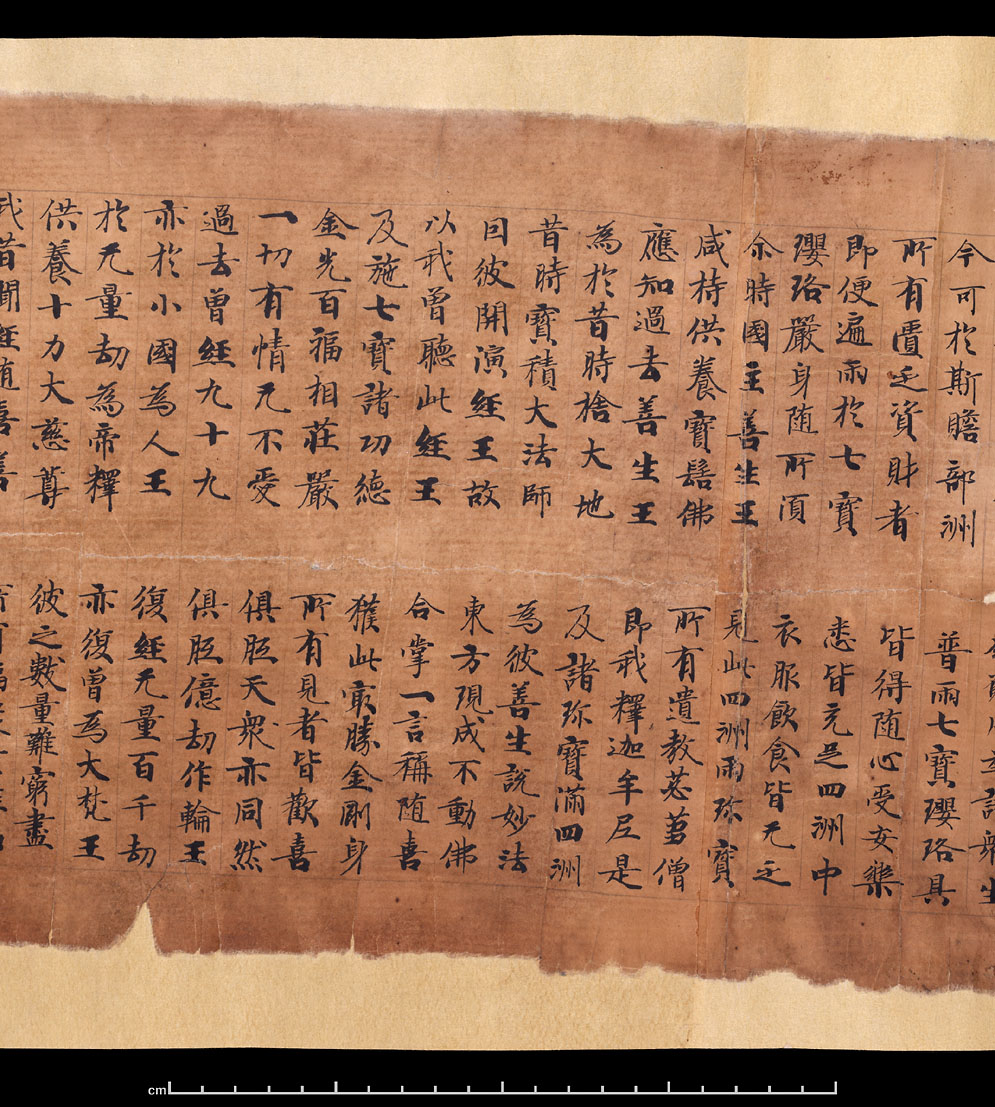 諸眾生
今可於斯贍部洲　普雨七寶瓔珞具
所有匱乏資財者　皆得随心受安樂
即便遍雨於七寶　悉皆充足四洲中
瓔珞嚴身随所湏　衣服飲食皆无乏
尒時國主善生王　見此四洲雨珎寶
咸持供養寶髻佛　所有遺教苾蒭僧
應知過去善生王　即我釋迦牟尼是
為於昔時捨大地　及諸珎寶滿四洲
昔時寶積大法師　為彼善生説妙法
因彼開演経王故　東方現成不動佛
以我曾聽此経王　合掌一言稱随喜
及施七寶諸功德　獲此㝡勝金剛身
金光百福相莊嚴　所有見者皆歡喜
一切有情无不愛　俱胝天衆亦同然
過去曾経九十九　俱胝億劫作輪王
亦於小國為人王　復経无量百千劫
於无量劫為帝釋　亦復曾為大梵王
供養十力大慈尊　彼之數量難窮盡
我昔聞経随喜善